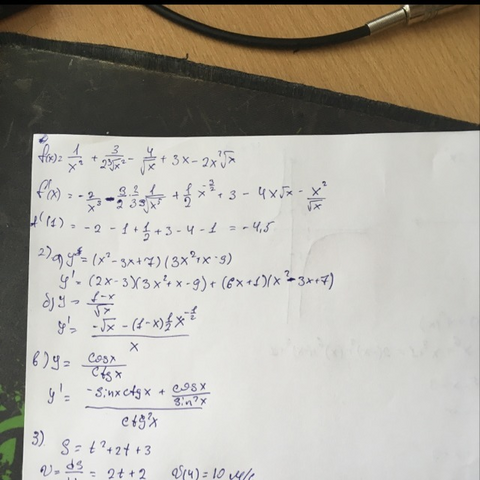 f(x)= 1/x² + 3/(2∛x²) - 4/√x + 3x - 2x²√x
f'(x) = - 2/x³ - 3/2 · 2/3 · 1/∛x⁵ + 1/2 x^(-3/2) + 3 - 4x√x - x²/√x
f'(1) = -2 - 1 + 1/2 + 3 - 4 - 1 = -4,5
2) а) y = (x² - 3x + 7)(3x² + x - 9)
y' = (2x - 3)(3x² + x - 9) + (6x + 1)(x² - 3x + 7)
б) y = (1-x)/√x
y' = (-√x - (1-x) 1/2 x^(-1/2))/x
в) y = cosx/ctgx
y' = (-sinx ctgx + cosx/sin²x)/ctg²x
3) S = t² + 2t + 3
v = dS/dt = 2t + 2 v(4) = 10 м/с